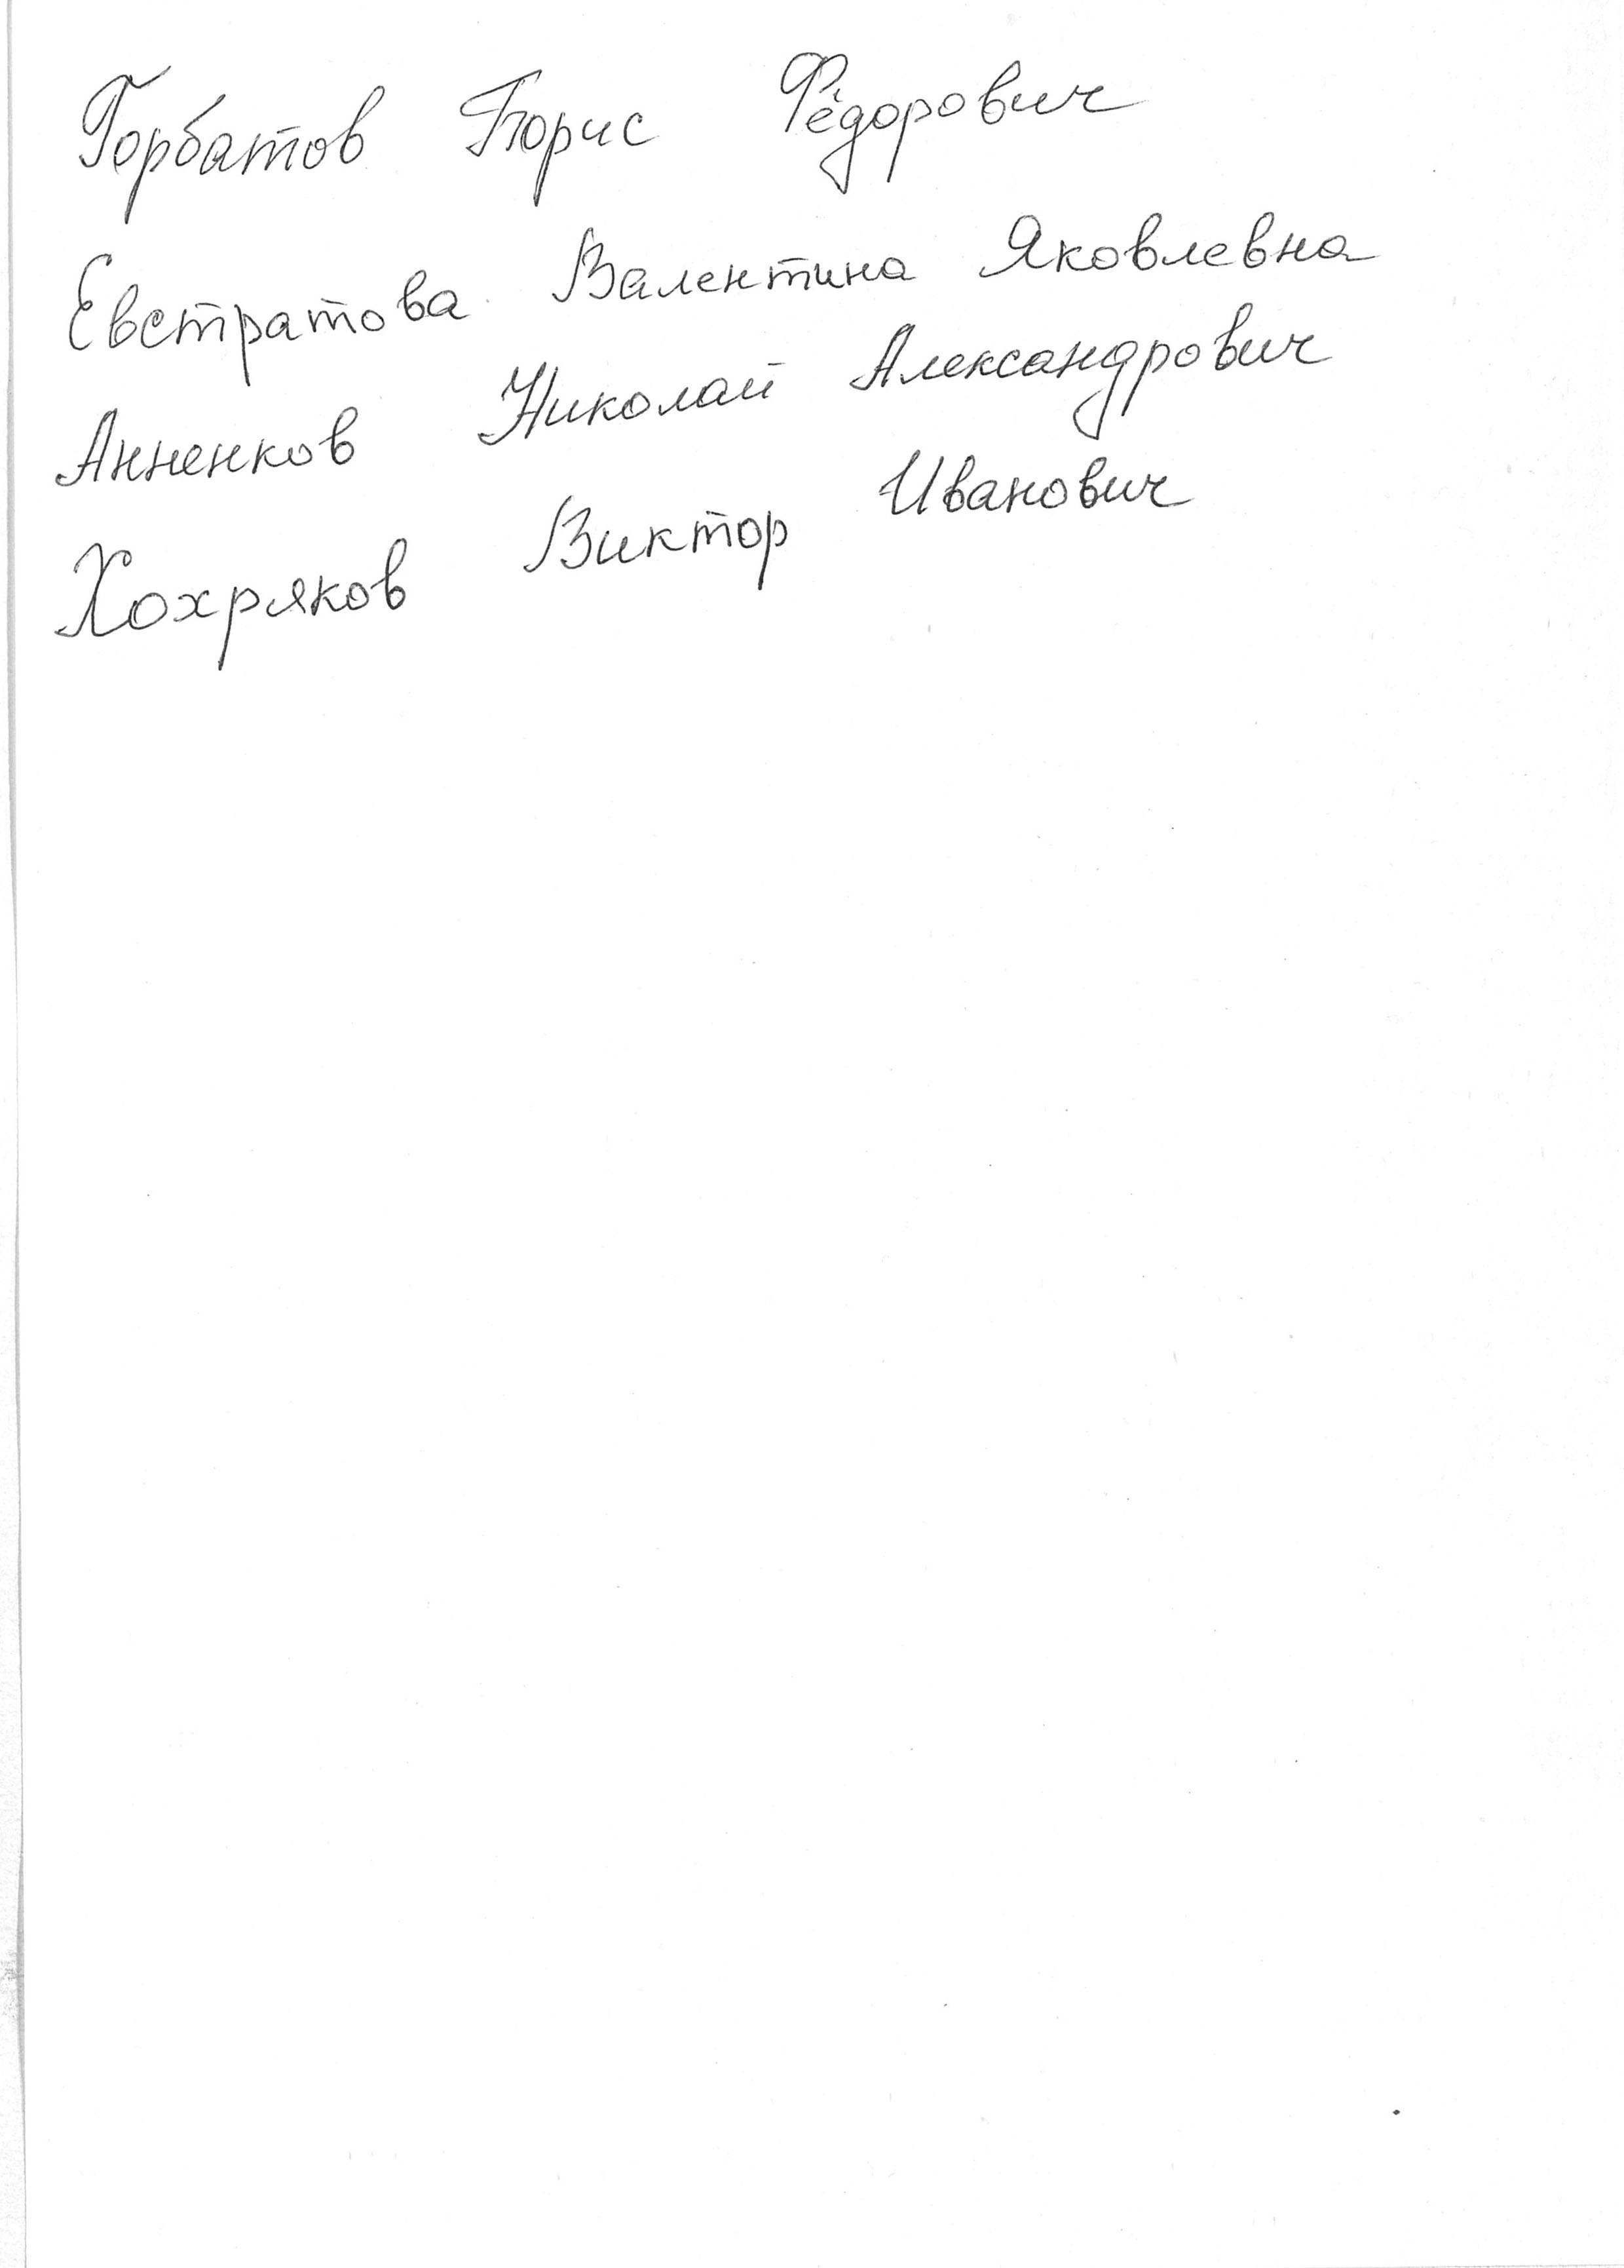 Горбатов Борис Фёдорович
Евстратова Валентина Яковлевна
Анненков Николай Александрович
Хохряков Виктор Иванович